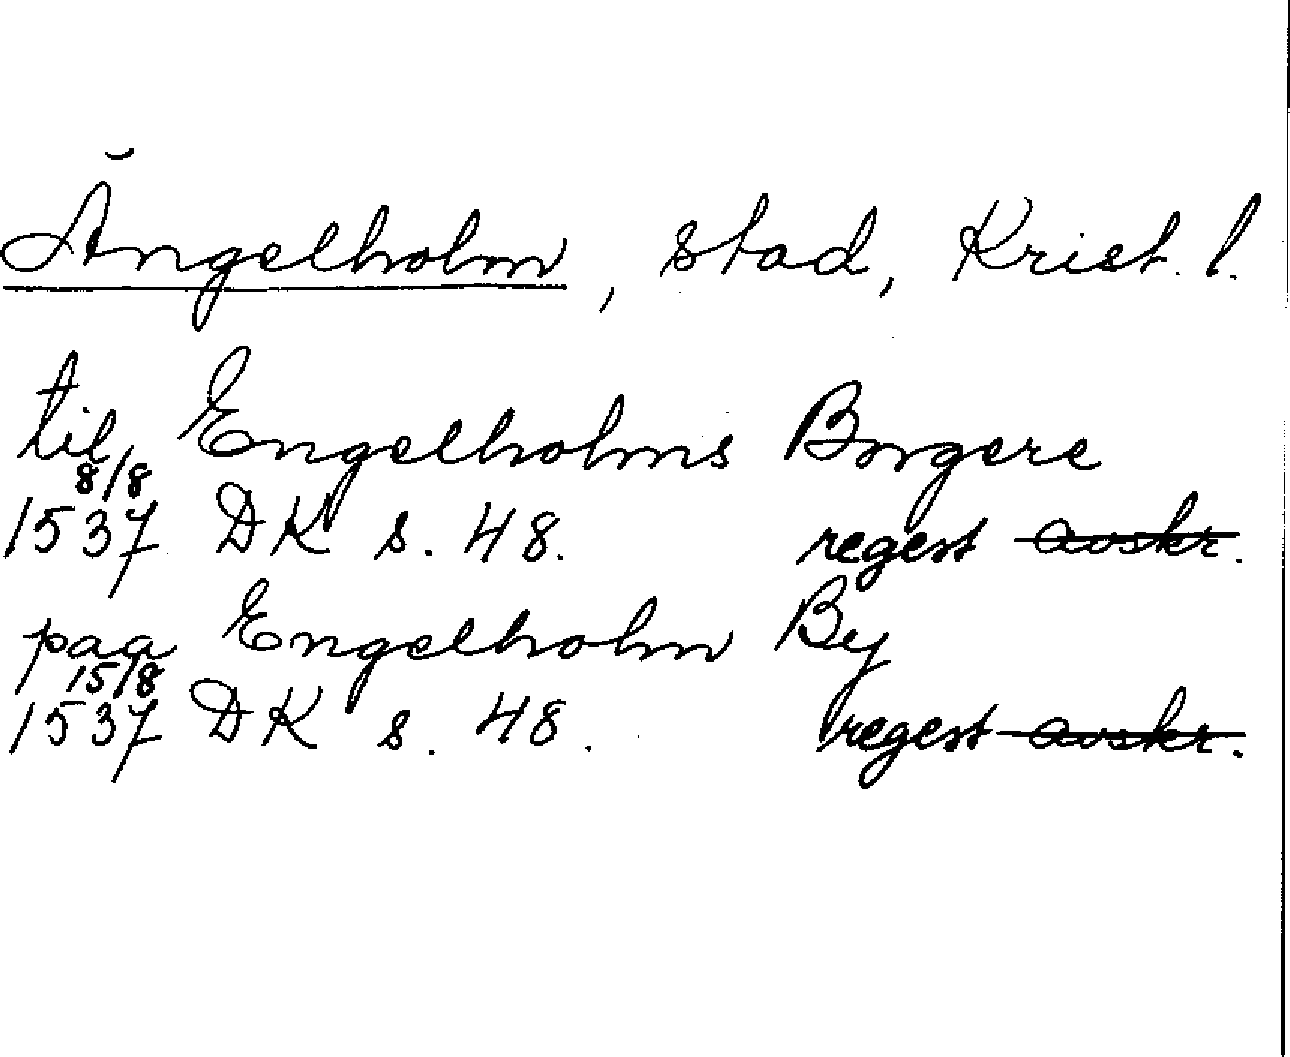 Ängelholm, stad, Krist. l.
til Engelholms Borgere
8/8
1537 DK s. 48. regest avskr.
paa Engelholm By
15/8
1537 DK s. 48. regest avskr.